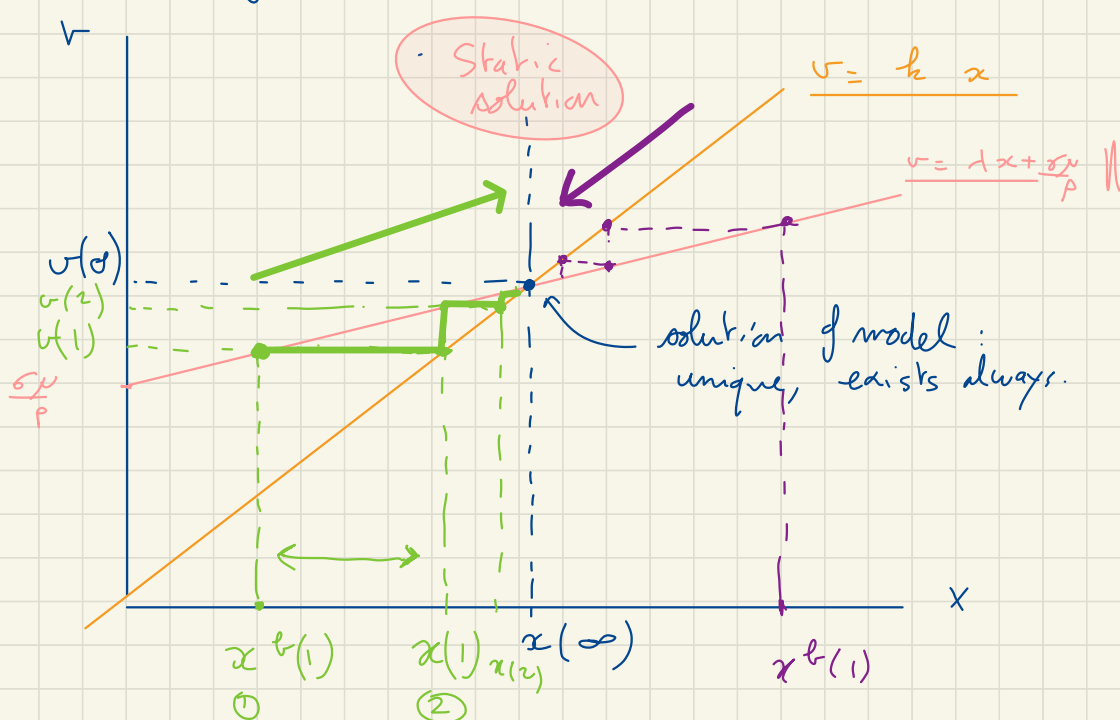 v
Static
solution
v = k x
v = λx + σμ/ρ
v(∞)
v(2)
v(1)
σμ/ρ
solution of model :
unique, exists always.
x
x^b(1)
x(1)
x(2)
x(∞)
x^b(1)
①
②